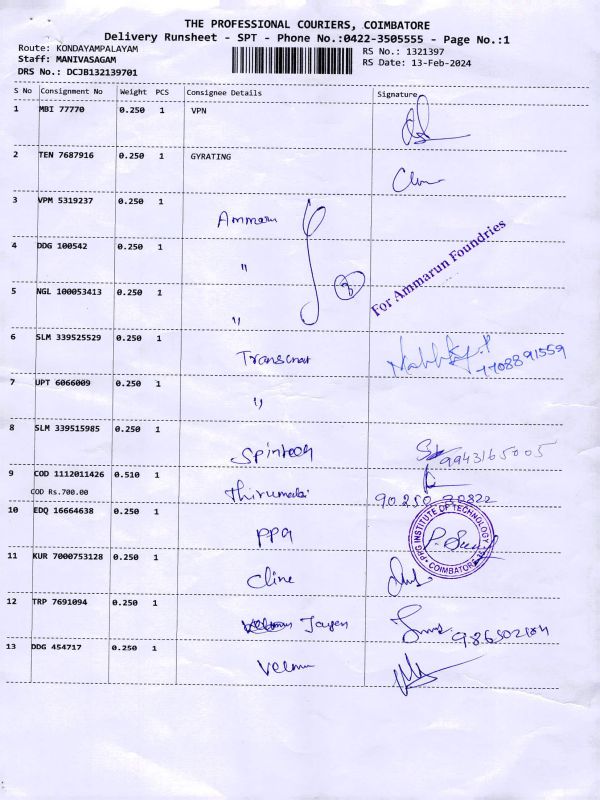 THE PROFESSIONAL COURIERS, COIMBATORE
Delivery Runsheet - SPT - Phone No.:0422-3505555 - Page No.:1
Route: KONDAYAMPALAYAM
Staff: MANIVASAGAM
DRS No.: DCJB132139701
RS No.: 1321397
RS Date: 13-Feb-2024
S No Consignment No Weight PCS Consignee Details Signature
1 MBI 77770 0.250 1 VPN
2 TEN 7687916 0.250 1 GYRATING
3 VPM 5319237 0.250 1 Ammarun
4 DDG 100542 0.250 1 "
For Ammarun Foundries
5 NGL 100053413 0.250 1 "
6 SLM 339525529 0.250 1 Transcraft 7708891559
7 UPT 6066009 0.250 1 "
8 SLM 339515985 0.250 1 Spintech 9943165005
9 COD 1112011426 0.510 1 Thirumalai
COD Rs.700.00
90250 30822
10 EDQ 16664638 0.250 1 PPG
PPG INSTITUTE OF TECHNOLOGY
COIMBATORE
11 KUR 7000753128 0.250 1 Cline
12 TRP 7691094 0.250 1 Jayen
13 DDG 454717 0.250 1 Velmu